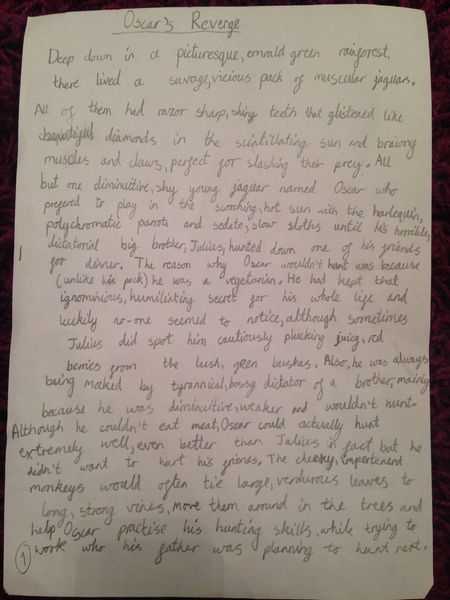 Oscar's Revenge
Deep down in a picturesque, emrald green rainforest,
there lived a savage, vicious pack of muscular jaguars.
All of them had razor sharp, shiny teeth that glistened like
diamonds in the scintillating sun and brawny
muscles and claws, perfect for slashing their prey. All
but one diminuitive, shy young jaguar named Oscar who
prefered to play in the scorching, hot sun with the harlequin,
polychromatic parrots and sedate, slow sloths until his horrible,
dictatorial big brother, Julius, hunted down one of his friends
for dinner. The reason why Oscar wouldn't hunt was because
(unlike his pack) he was a vegetarian. He had kept that
ignominious, humiliating secret for his whole life and
luckily no-one seemed to notice, although sometimes
Julius did spot him cautiously plucking juicy, red
berries from the lush, green bushes. Also, he was always
being mocked by tyrannical, bossy dictator of a brother, mainly
because he was diminuitive, weaker and wouldn't hunt.
Although he couldn't eat meat, Oscar could actually hunt
extremely well, even better than Julius in fact but he
didn't want to hurt his friends. The cheeky,
monkeys would often tie large, verdurous leaves to
long, strong vines, move them around in the trees and
help Oscar practise his hunting skills, while trying to
work who his father was planning to hunt next.
1